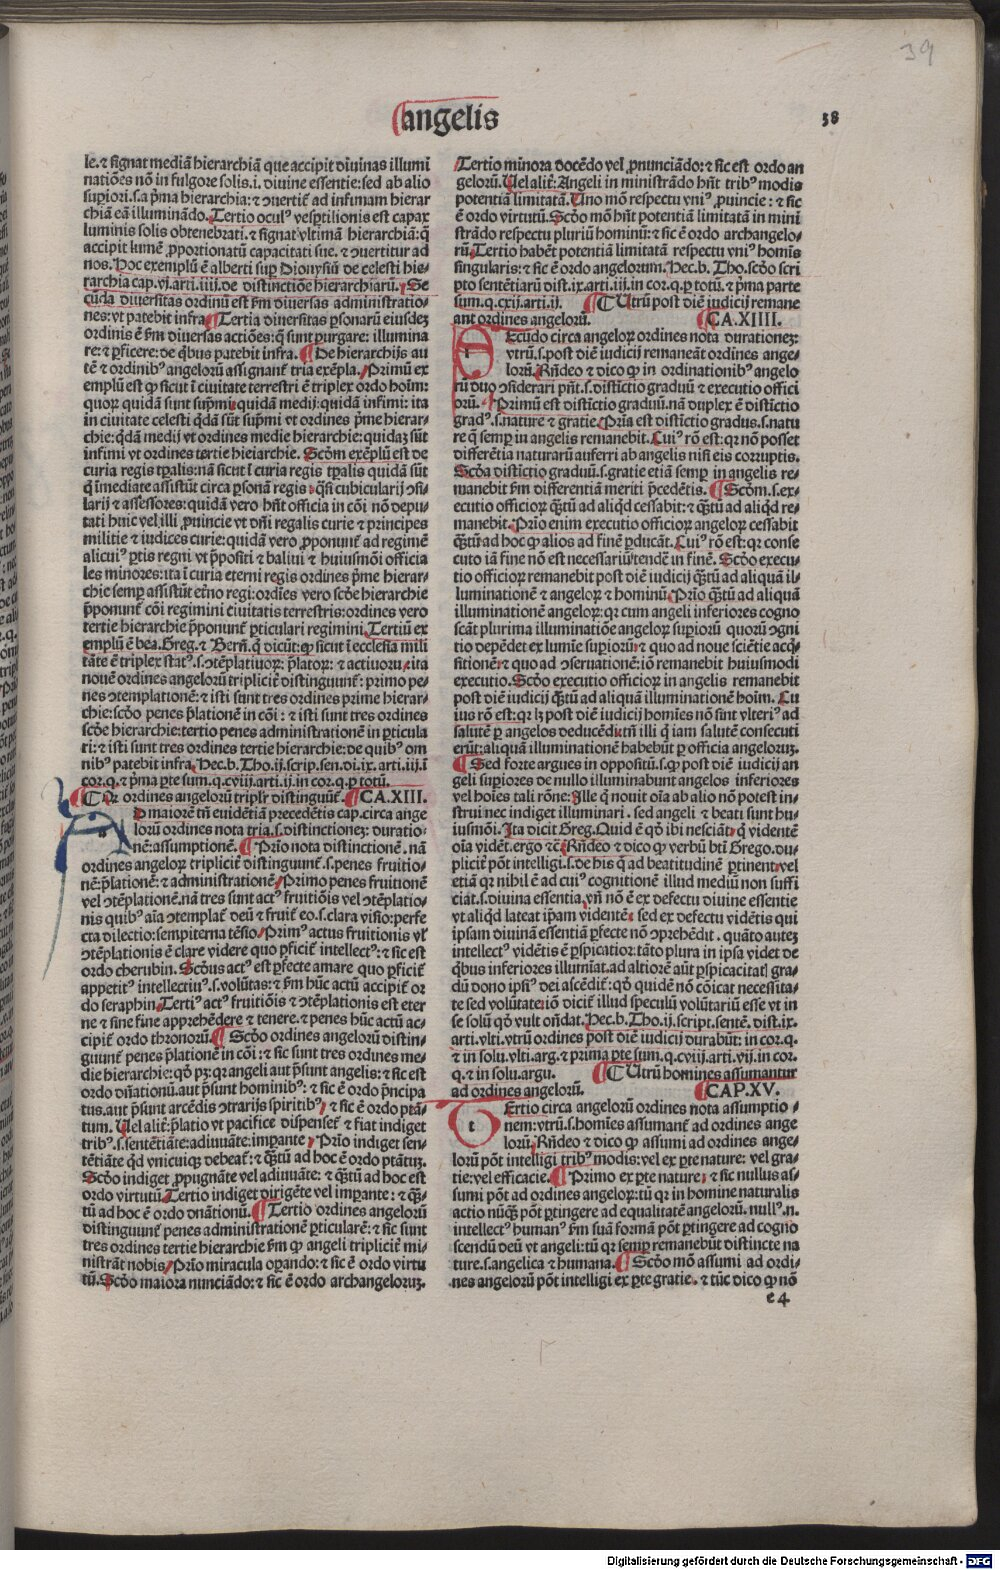 39
angelis
38
le. ⁊ signat mediā hierarchiā que accipit diuinas illumi
natiōes nō in fulgore solis.i. diuine essentie: sed ab alio
supiori.s.a pma hierarchia: ⁊ ↄuertiť ad infimam hierar
chiā eā illuminādo. Tertio oculꝰ vesptilionis est capax
luminis solis obtenebrati. ⁊ signat vltimā hierarchiā: q̄
accipit lumē pportionatū capacitati sue. ⁊ ↄuertitur ad
nos. Hoc exemplū ē alberti sup Dionysiū de celesti hie-
rarchia cap.vj.arti.iiij.de distinctiōe hierarchiarū. Se
cūda diuersitas ordinū est fm diuersas administratio-
nes: vt patebit infra. Tertia diuersitas psonarū eiusdeꝫ
ordinis ē fm diuersas actiōes: q̄ sunt purgare: illumina
re: ⁊ pficere: de qbus patebit infra. De hierarchijs au
tē ⁊ ordinibꝰ angelorū assignanť tria exēpla. Primū ex
emplū est ꝙ sicut ī ciuitate terrestri ē triplex ordo hoīm:
quoꝝ quidā sunt supmi: quidā medij: quidā infimi: ita
in ciuitate celesti qdā sūt supmi vt ordines pme hierar-
chie: qdā medij vt ordines medie hierarchie: quidaꝫ sūt
infimi vt ordines tertie hierarchie. Scdm exēplū est de
curia regis tpalis: nā sicut ī curia regis tpalis quidā sūt
q̄ īmediate assistūt circa psonā regis: qsi cubicularij ↄsi-
larij ⁊ assessores: quidā vero hñt officia in cōi nō depu-
tati huic vel illi puincie vt dñi regalis curie ⁊ principes
militie ⁊ iudices curie: quidā vero pponunť ad regimē
alicuiꝰ ptis regni vt ppositi ⁊ baliui ⁊ huiusmōi officia
les minores: ita ī curia eterni regis ordines pme hierar-
chie semp assistūt etno regi: ordīes vero scde hierarchie
pponunť cōi regimini ciuitatis terrestris: ordines vero
tertie hierarchie pponunť pticulari regimini. Tertiū ex
emplū ē bea. Greg. ⁊ Berñ. q̄ dicūt: ꝙ sicut ī ecclesia mili
tāte ē triplex statꝰ.s. ↄtēplatiuoꝝ: platoꝝ: ⁊ actiuoꝝ: ita
nouē ordines angelorū tripliciť distinguunť: primo pe-
nes ↄtemplationē: ⁊ isti sunt tres ordines prime hierar-
chie: scdo penes plationē in cōi: ⁊ isti sunt tres ordines
scde hierarchie: tertio penes administrationē in pticula
ri: ⁊ isti sunt tres ordines tertie hierarchie: de quibꝰ om
nibꝰ patebit infra. Hec.b. Tho.ij.scrip.sen.di.ix.arti.iij.ī
cor.q. ⁊ pma pte sum.q.cviij.arti.ij.in cor.q.p totū.
Qr ordines angelorū triplr distinguūť. CA.XIII.
a
D maiorē tñ euidētiā precedētis cap.circa ange
lorū ordines nota tria.s.distinctioneꝫ: duratio-
nē: assumptionē. Prio nota distinctionē. nā
ordines angeloꝝ tripliciť distinguunť.s.penes fruitio-
nē: plationē: ⁊ administrationē. Primo penes fruitionē
vel ↄtēplationē. nā tres sunt actꝰ fruitiōis vel ↄtēplatio-
nis quibꝰ aīa ↄtemplať deū ⁊ fruiť eo.s.clara visio: perfe
cta dilectio: sempiterna tēsio. Primꝰ actus fruitionis vl
ↄtēplationis ē clare videre quo pficiť intellectꝰ: ⁊ sic est
ordo cherubin. Scdus actꝰ est pfecte amare quo pficiť
appetitꝰ intellectiuꝰ.s.volūtas: ⁊ fm hūc actū accipiť or
do seraphin. Tertiꝰ actꝰ fruitiōis ⁊ ↄtēplationis est eter
ne ⁊ sine fine apprehēdere ⁊ tenere. ⁊ penes hūc actū ac-
cipiť ordo thronorū. Scdo ordines angelorū distin-
guunť penes plationē in cōi: ⁊ sic sunt tres ordines me-
die hierarchie: qd pꝫ: qꝛ angeli aut psunt angelis: ⁊ sic est
ordo dñationū. aut psunt hominibꝰ: ⁊ sic ē ordo pncipa
tus. aut psunt arcēdis ↄtrarijs spiritibꝰ: ⁊ sic ē ordo ptā-
tum. Uel aliť: platio vt pacifice dispenseť ⁊ fiat indiget
tribꝰ.s.sentētiāte: adiuuāte: impante. Prio indiget sen-
tētiāte qd vnicuiqꝫ debeať: ⁊ q̄tū ad hoc ē ordo ptātuꝫ.
Scdo indiget ppugnāte vel adiuuāte: ⁊ q̄tū ad hoc est
ordo virtutū. Tertio indiget dirigēte vel impante: ⁊ q̄-
tū ad hoc ē ordo dñationū. Tertio ordines angelorū
distinguunť penes administrationē pticularē: ⁊ sic sunt
tres ordines tertie hierarchie fm ꝙ angeli tripliciť mi-
nistrāt nobis. Prio miracula opando: ⁊ sic ē ordo virtu
tū. Scdo maiora nunciādo: ⁊ sic ē ordo archangeloruꝫ.
Tertio minora docēdo vel pnunciādo: ⁊ sic est ordo an
gelorū. Uel aliť: Angeli in ministrādo hñt tribꝰ modis
potentiā limitatā. Uno mō respectu vniꝰ puincie: ⁊ sic
ē ordo virtutū. Scdo mō hñt potentiā limitatā in mini
strādo respectu pluriū hominū: ⁊ sic ē ordo archangelo-
rū. Tertio habēt potentiā limitatā respectu vniꝰ homis
singularis: ⁊ sic ē ordo angelorum. Hec.b. Tho.scdo scri
pto sentētiarū dist.ix.arti.iij.in cor.q.p totū. ⁊ pma parte
sum.q.cxij.arti.ij. Utrū post diē iudicij remane
ant ordines angelorū. CA.XIIII.
s
Ecudo circa angeloꝝ ordines nota durationeꝫ:
vtrū.s.post diē iudicij remaneāt ordines ange-
lorū. Rñdeo ⁊ dico ꝙ in ordinationibꝰ angelo
rū duo ↄsiderari pñt.s.distīctio graduū ⁊ executio offici
orū. Primū est distīctio graduū. nā duplex ē distīctio
gradꝰ.s.nature ⁊ gratie. Pria est distīctio gradus.s.natu
re q̄ semp in angelis remanebit. Cuiꝰ rō est: qꝛ nō posset
differētia naturarū auferri ab angelis nisi eis corruptis.
Scda distīctio graduū.s.gratie etiā semp in angelis re-
manebit fm differentiā meriti pcedētis. Scdm.s.ex-
ecutio officioꝝ q̄tū ad aliqd cessabit: ⁊ q̄tū ad aliqd re-
manebit. Prio enim executio officioꝝ angeloꝝ cessabit
q̄tū ad hoc ꝙ alios ad finē pducāt. Cuiꝰ rō est: qꝛ conse
cuto iā fine nō est necessariū tendē in finē. Scdo execu-
tio officioꝝ remanebit post diē iudicij q̄tū ad aliquā il-
luminationē ⁊ angeloꝝ ⁊ hominū. Prio q̄tū ad aliquā
illuminationē angeloꝝ: qꝛ cum angeli inferiores cogno
scāt plurima illuminatiōe angeloꝝ supiorū quorū ↄgni
tio depēdet ex lumīe supiorū: ⁊ quo ad noue sciētie acq-
sitionē: ⁊ quo ad ↄseruationē: iō remanebit huiusmodi
executio. Scdo executio officioꝝ in angelis remanebit
post diē iudicij q̄tū ad aliquā illuminationē hoīm. Cu
ius rō est: qꝛ lꝫ post diē iudicij homīes nō sint vlteriꝰ ad
salutē p angelos deducēdi: tñ illi q̄ iam salutē consecuti
erūt: aliquā illuminationē habebūt p officia angeloruꝫ.
Sed forte argues in oppositū.s.ꝙ post diē iudicij an
geli supiores de nullo illuminabunt angelos inferiores
vel hoīes tali rōne: Ille q̄ nouit oīa ab alio nō potest in-
strui nec indiget illuminari. sed angeli ⁊ beati sunt hu-
iusmōi. Ita dicit Greg. Quid ē qd ibi nesciāt: q̄ vidētē
oīa vidēt. ergo ⁊č. Rñdeo ⁊ dico ꝙ verbū bti Grego. du-
pliciť pōt intelligi.s.de his q̄ ad beatitudinē ptinent: vel
etiā qꝛ nihil ē ad cuiꝰ cognitionē illud mediū non suffi
ciat.s.diuina essentia. vñ nō ē ex defectu diuine essentie
vt aliqd lateat ipam videntē: sed ex defectu vidētis qui
ipsam diuinā essentiā pfecte nō ↄphēdit. quāto auteꝫ
intellectꝰ vidētis ē pspicatior: tāto plura in ipsa videt de
qbus inferiores illumiať. ad altiorē aūt pspicacitatī gra-
dū dono ipsiꝰ dei ascēdiť: qd quidē nō cōicat necessita-
te sed volūtate: iō diciť illud speculū volūtariū esse vt in
se solū qd vult oñdat. Hec.b. Tho.ij.script.sentē.dist.ix.
arti.vlti.vtrū ordines post diē iudicij durabūt: in cor.q.
⁊ in solu.vlti.arg. ⁊ prima pte sum.q.cviij.arti.vij.in cor.
q. ⁊ in solu.argu. Utrū homines assumantur
ad ordines angelorū. CAP.XV.
t
Ertio circa angelorū ordines nota assumptio-
nem: vtrū.s.homīes assumanť ad ordines ange
lorū. Rñdeo ⁊ dico ꝙ assumi ad ordines ange-
lorū pōt intelligi tribꝰ modis: vel ex pte nature: vel gra-
tie: vel efficacie. Primo ex pte nature: ⁊ sic nullus as-
sumi pōt ad ordines angeloꝝ: tū qꝛ in homine naturalis
actio nūq̄ pōt ptingere ad equalitatē angelorū. nullꝰ.n.
intellectꝰ humanꝰ fm suā formā pōt ptingere ad cogno
scendū deū vt angeli: tū qꝛ semp remanebūt distincte na
ture.s.angelica ⁊ humana. Scdo mō assumi ad ordi-
nes angelorū pōt intelligi ex pte gratie. ⁊ tūc dico ꝙ nō
e4
Digitalisierung gefördert durch die Deutsche Forschungsgemeinschaft - DFG